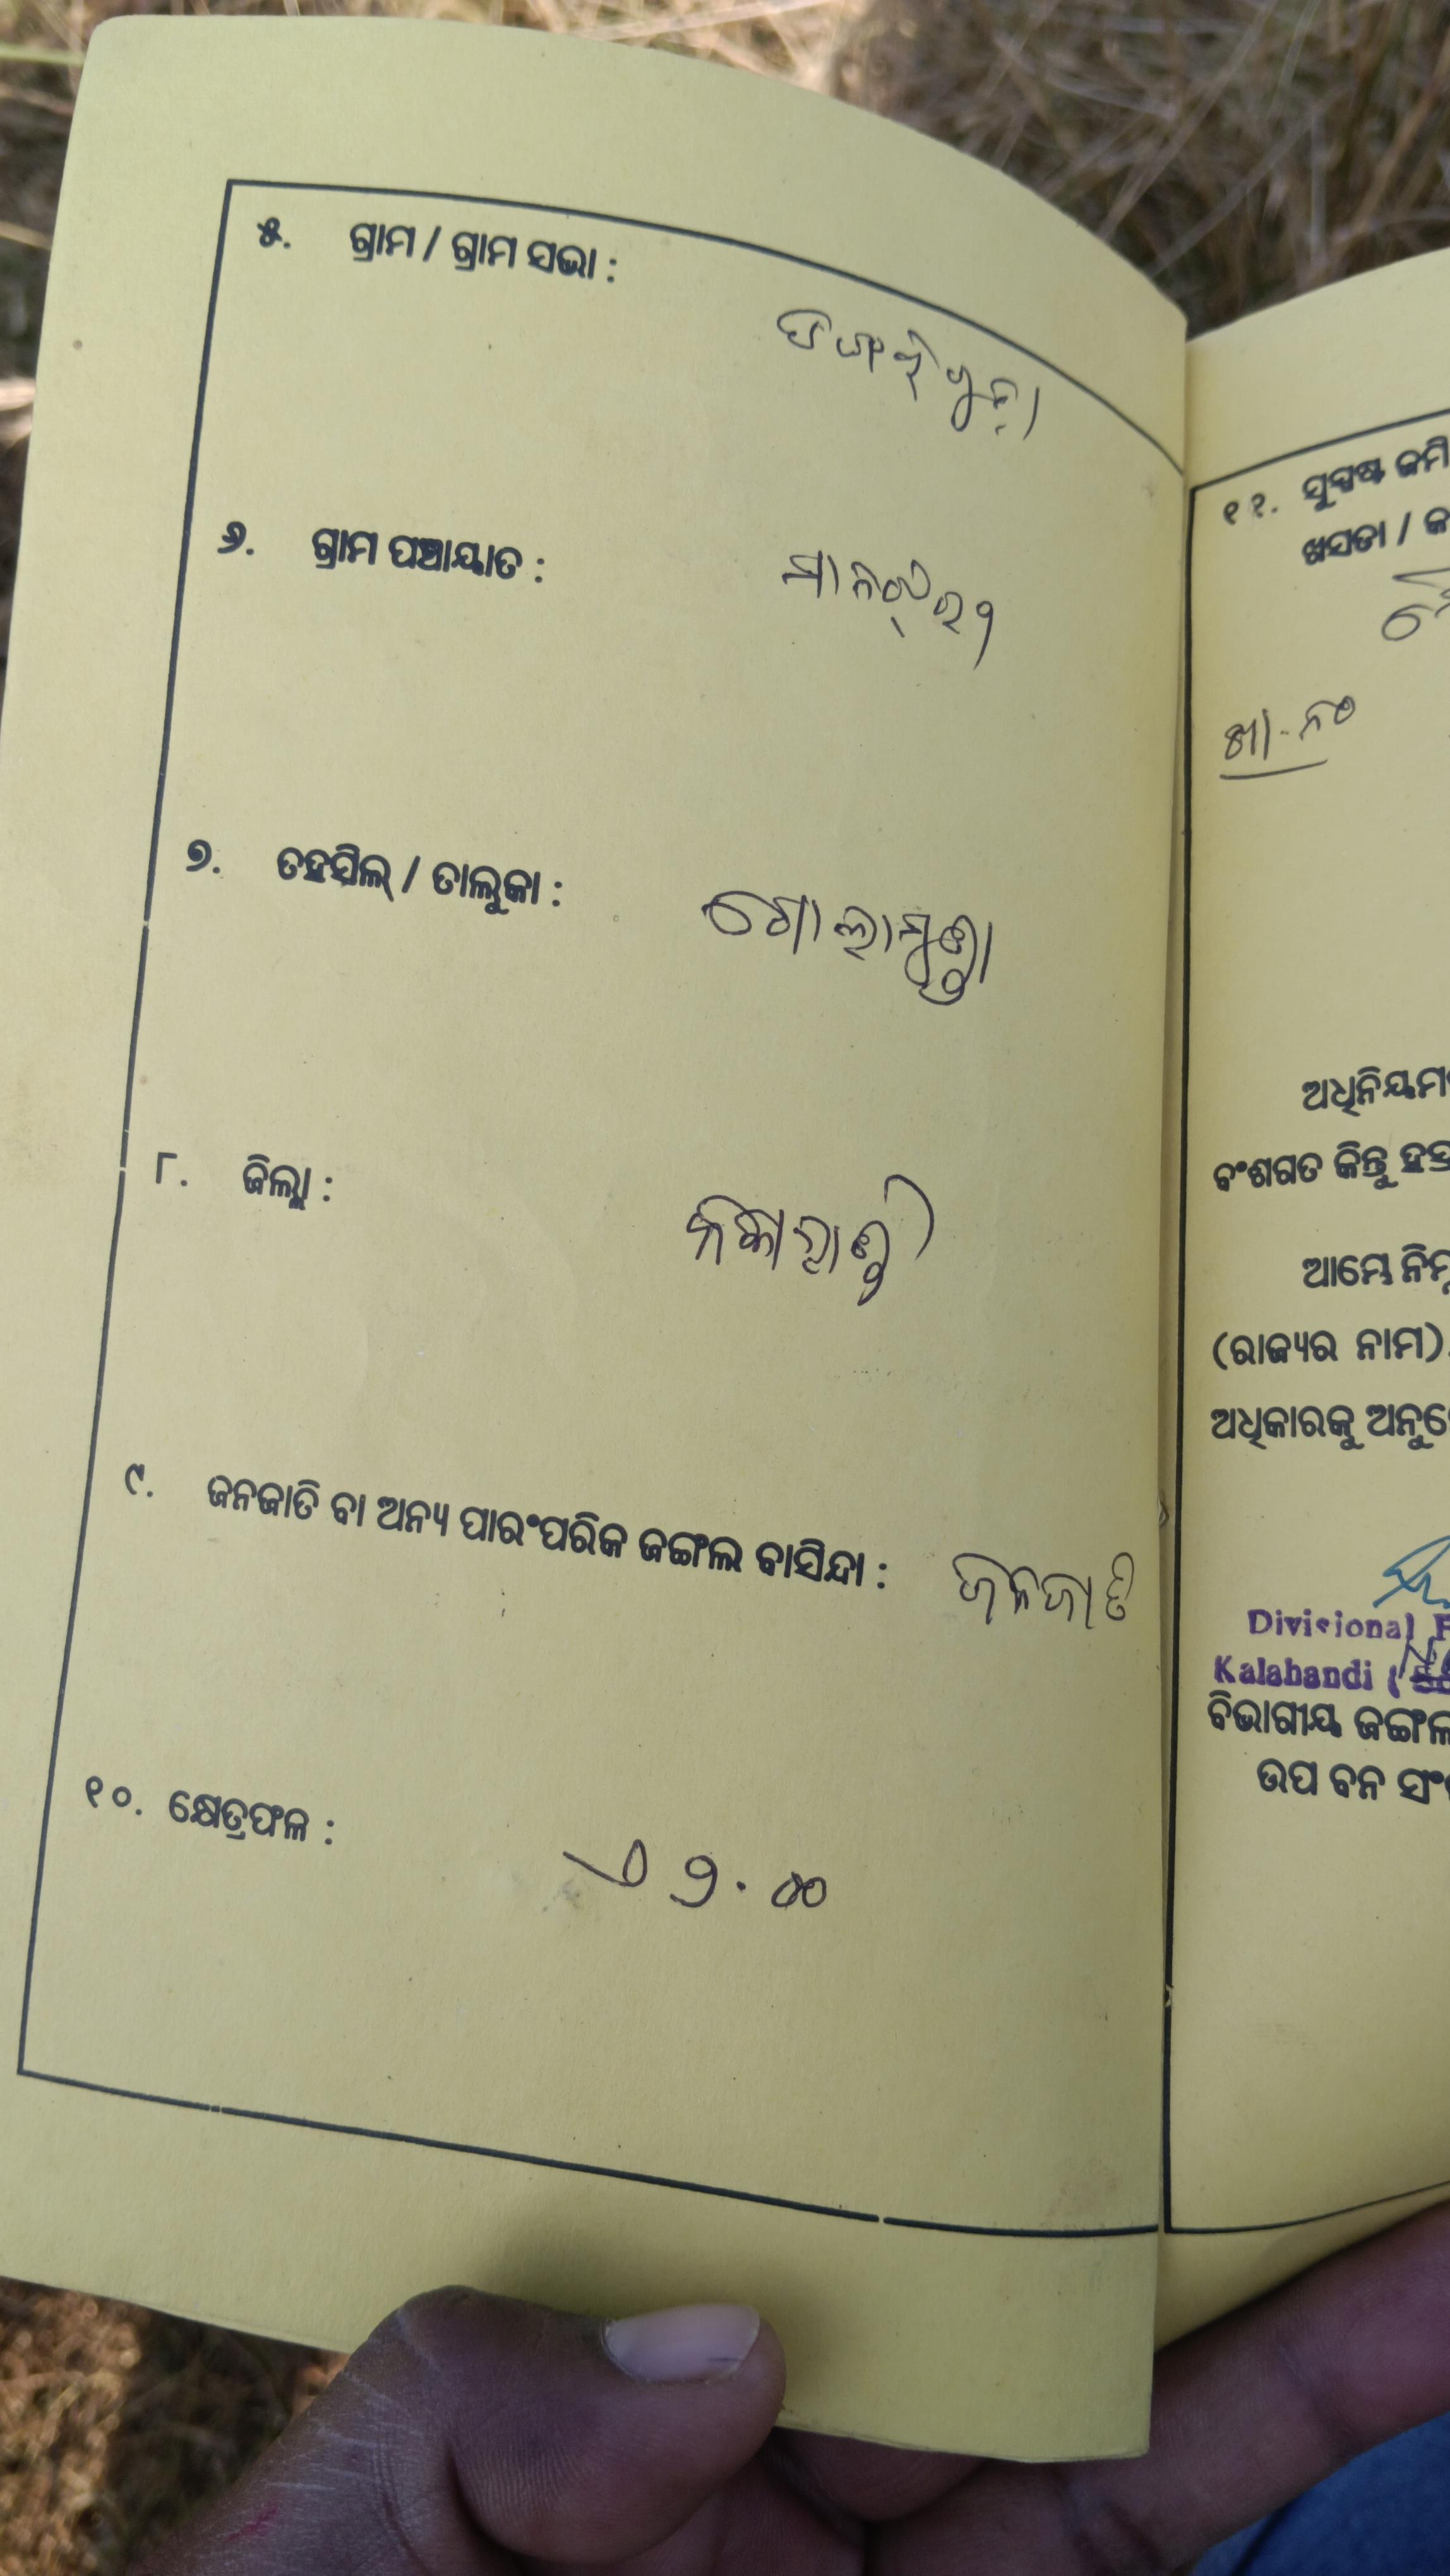 ୫. ଗ୍ରାମ / ଗ୍ରାମ ସଭା :
୬. ଗ୍ରାମ ପଞ୍ଚାୟାତ :
୭. ତହସିଲ୍ / ତାଲୁକା : ଗୋଲାମୁଣ୍ଡା
୮. ଜିଲ୍ଲା : କଳାହାଣ୍ଡି
୯. ଜନଜାତି ବା ଅନ୍ୟ ପାରଂପରିକ ଜଙ୍ଗଲ ବାସିନ୍ଦା : ଜନଜାତି
୧୦. କ୍ଷେତ୍ରଫଳ :
୧୧. ସୁସ୍ପଷ୍ଟ ଜମି
ଖସଡା / କ
ଖା-ନଂ
ଅଧିନିୟମ
ବଂଶଗତ କିନ୍ତୁ ହସ୍ତ
ଆମ୍ଭେ ନିମ୍ନ
(ରାଜ୍ୟର ନାମ)
ଅଧିକାରକୁ ଅନୁ
Divisional F
Kalahandi (
ବିଭାଗୀୟ ଜଙ୍ଗଲ
ଉପ ବନ ସଂ